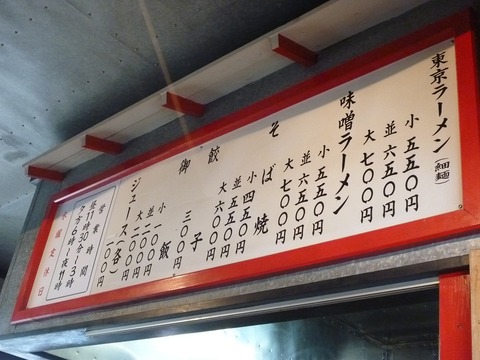 東京ラーメン(細麺)
小 五五〇円
並 六〇〇円
大 七〇〇円
味噌ラーメン
小 五五〇円
並 六〇〇円
大 七〇〇円
焼そば
小 四五〇円
並 五五〇円
大 六五〇円
餃子
三〇〇円
御飯
小 一〇〇円
並 一五〇円
大 二〇〇円
ジュース(各)
二〇〇円
営業時間
昼11時30分〜3時
夕方6時〜夜11時
水曜定休日